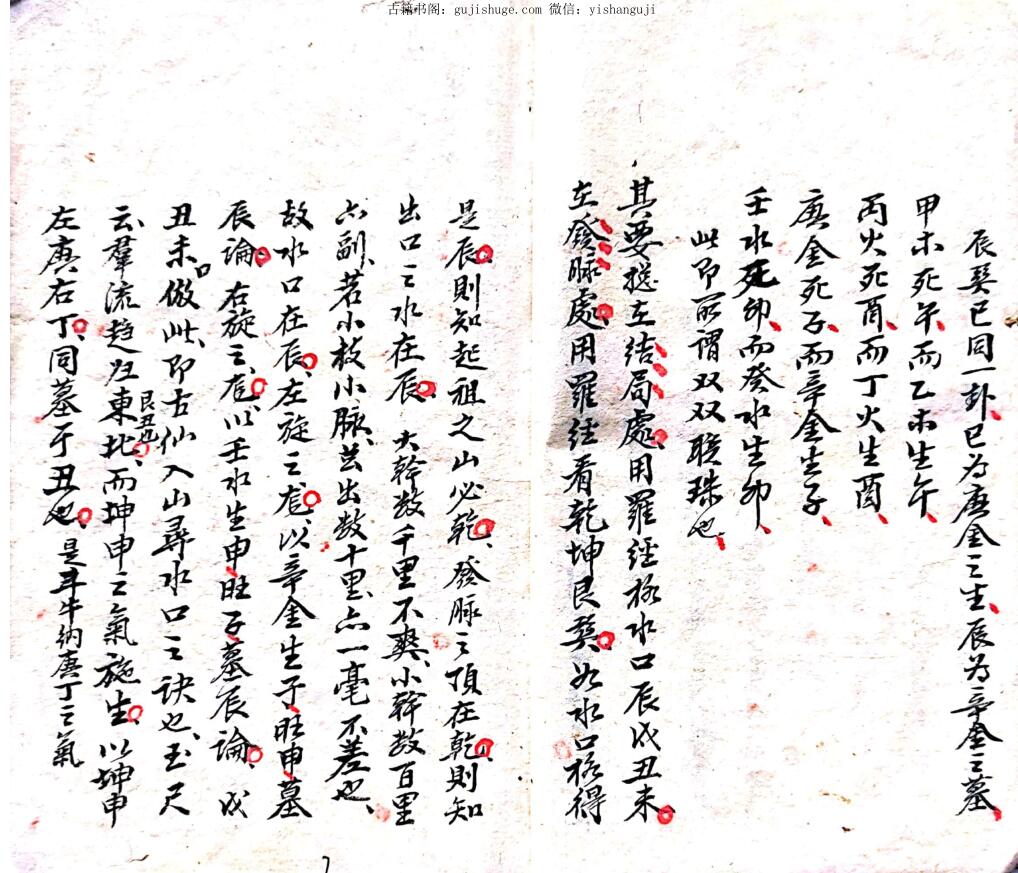 古籍书阁：gujishuge.com 微信：yishanguji
辰巽巳同一卦、巳为庚金之生、辰为辛金之墓、
甲木死午、而乙木生午、
丙火死酉、而丁火生酉、
庚金死子、而辛金生子、
壬水死卯、而癸水生卯、
此即所谓双双联珠也、
其要搃在结局處、用羅经格水口辰戌丑未
在發脉處、用羅经看乾坤艮巽、如水口格得
是辰、則知起祖之山必乾、發脉之頂在乾、則知
出口之水在辰、大幹数千里不爽、小幹数百里
六副、若小枝小脉、芸出数十里、亦一毫不差也、
故水口在辰、左旋之龙、以辛金生子旺申、墓
辰論、右旋之龙、以壬水生申、旺子墓辰論、戌
丑未、倣此、即古仙入山尋水口之诀也、玉尺
云、羣流趋归東北、艮丑也、而坤申之氣施生、以坤申
左庚右丁、同墓于丑也、是斗牛纳庚丁之氣